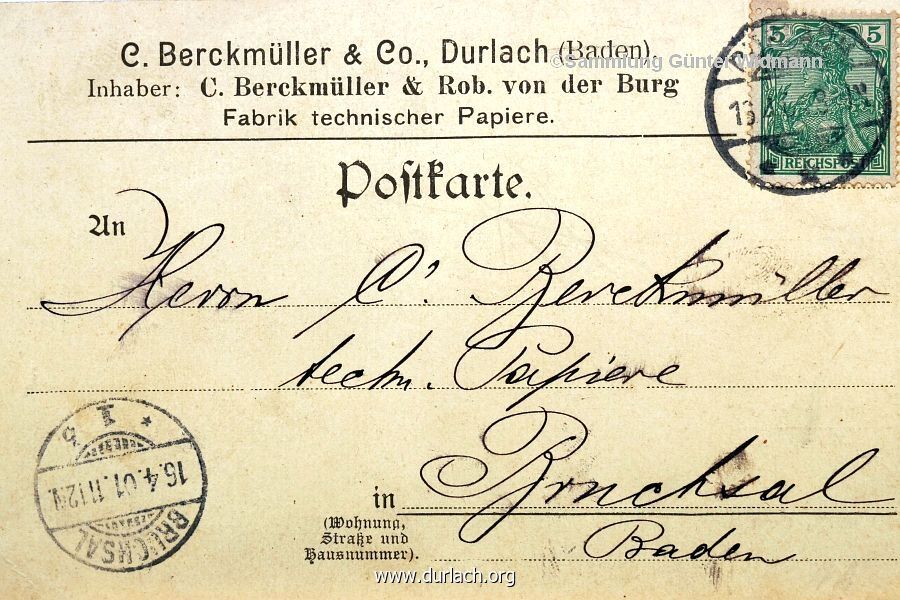 C. Berckmüller & Co., Durlach (Baden).
©Sammlung Günter Widmann
Inhaber: C. Berckmüller & Rob. von der Burg
Fabrik technischer Papiere.
5 5
REICHSPOST
Postkarte.
An
Herrn C. Berckmüller
techn. Papiere
in Bruchsal
(Wohnung,
Straße und
Hausnummer).
Baden
16.4.01.11-12V.
BRUCHSAL
www.durlach.org